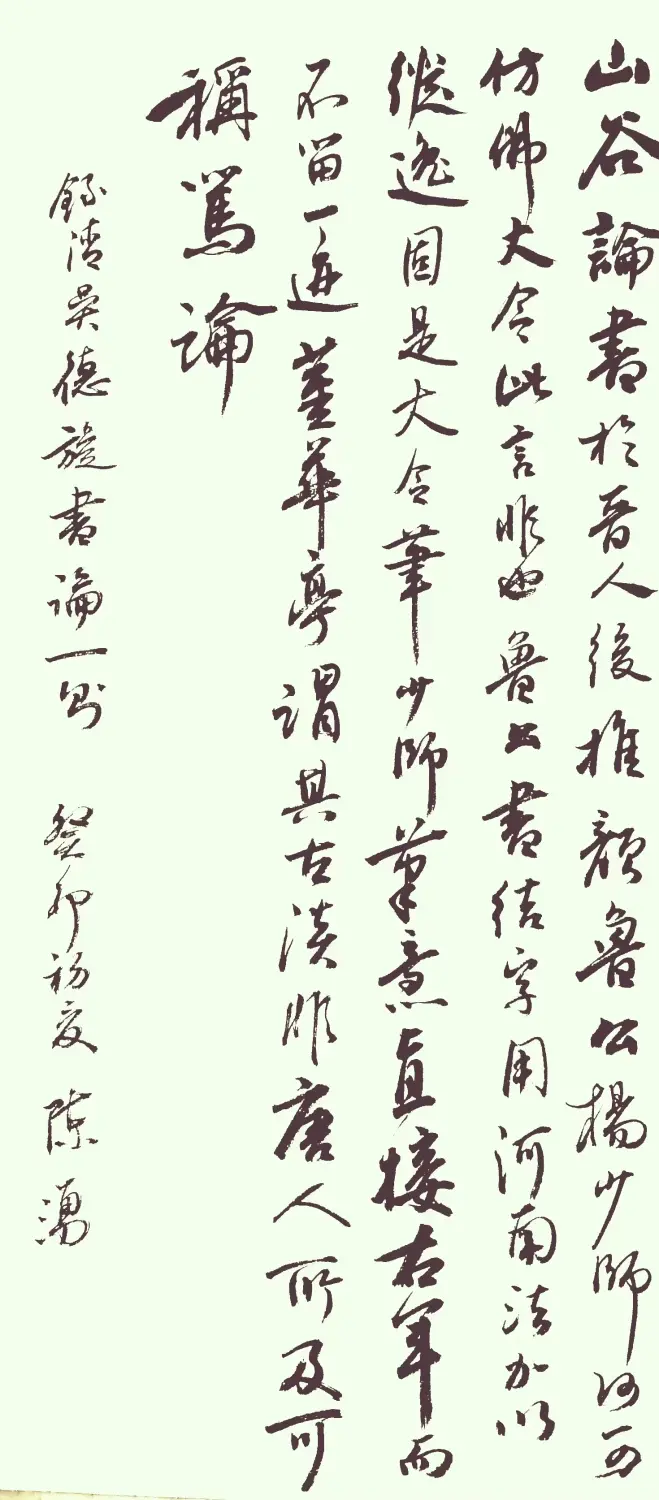 山谷論書於晉人後推顏魯公楊少師謂可
仿佛大令此言非也魯公書結字用河南法加以
縱逸固是大令筆少師筆意直接右軍而
不留一迹董華亭謂其古淡非唐人所及可
稱篤論
錄清吳德旋書論一則 癸卯初夏 陳湧